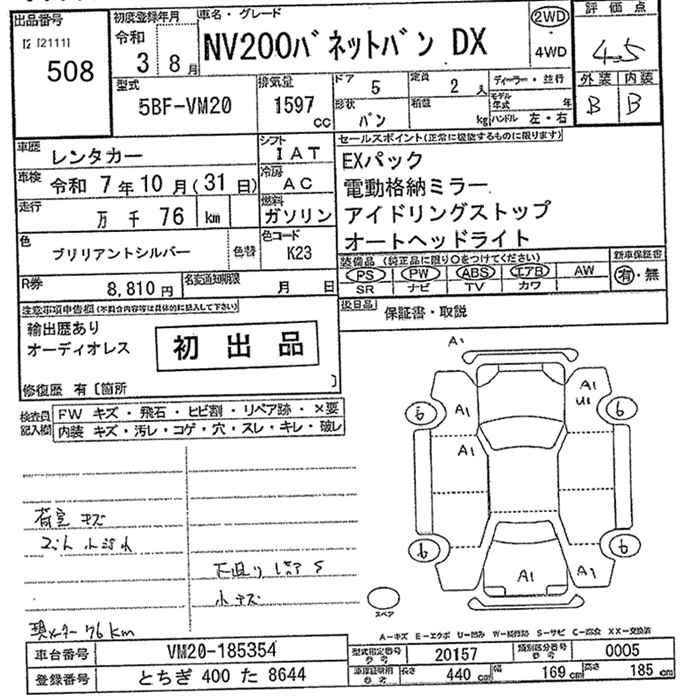 出品番号
12 12111
508
初度登録年月
令和
3 8月
車名・グレード
NV200バネットバン DX
2WD
・
4WD
評価点
4.5
外装 内装
B B
型式
5BF-VM20
排気量
1597
cc
ドア 5
形状 バン
定員 2 人
積載 kg
ディーラー・並行
モデル年式 年
ハンドル 左・右
車歴 レンタカー
車検 令和 7年10月(31日)
走行 万 千 76 km
色 ブリリアントシルバー 色替
R券 8,810円
名変通知期限 月 日
シフト IAT
冷房 AC
燃料 ガソリン
色コード K23
セールスポイント(正常に機能するものに限ります)
EXパック
電動格納ミラー
アイドリングストップ
オートヘッドライト
装備品 (純正品に限り○をつけてください)
PS PW ABS エアB AW
SR ナビ TV カワ
新車保証書
有・無
後日品 保証書・取説
注意事項申告欄(不具合内容等は具体的に記入して下さい)
輸出歴あり
オーディオレス
初出品
修復歴 有〔箇所 〕
検査員記入欄
FW キズ・飛石・ヒビ割・リペア跡・×要
内装 キズ・汚レ・コゲ・穴・スレ・キレ・破レ
荷室 キズ
下廻り
小キズ
76km
A1
A1
A1
A1
U1
A1
A1
6
6
6
6
スペア
A−キズ E−エクボ U−凹み W−補修跡 S−サビ C−腐食 XX−交換済
車台番号 VM20-185354
登録番号 とちぎ 400 た 8644
型式指定番号 参考 20157
類別区分番号 参考 0005
車検証使用 参考 長さ 440 cm 幅 169 cm 高さ 185 cm